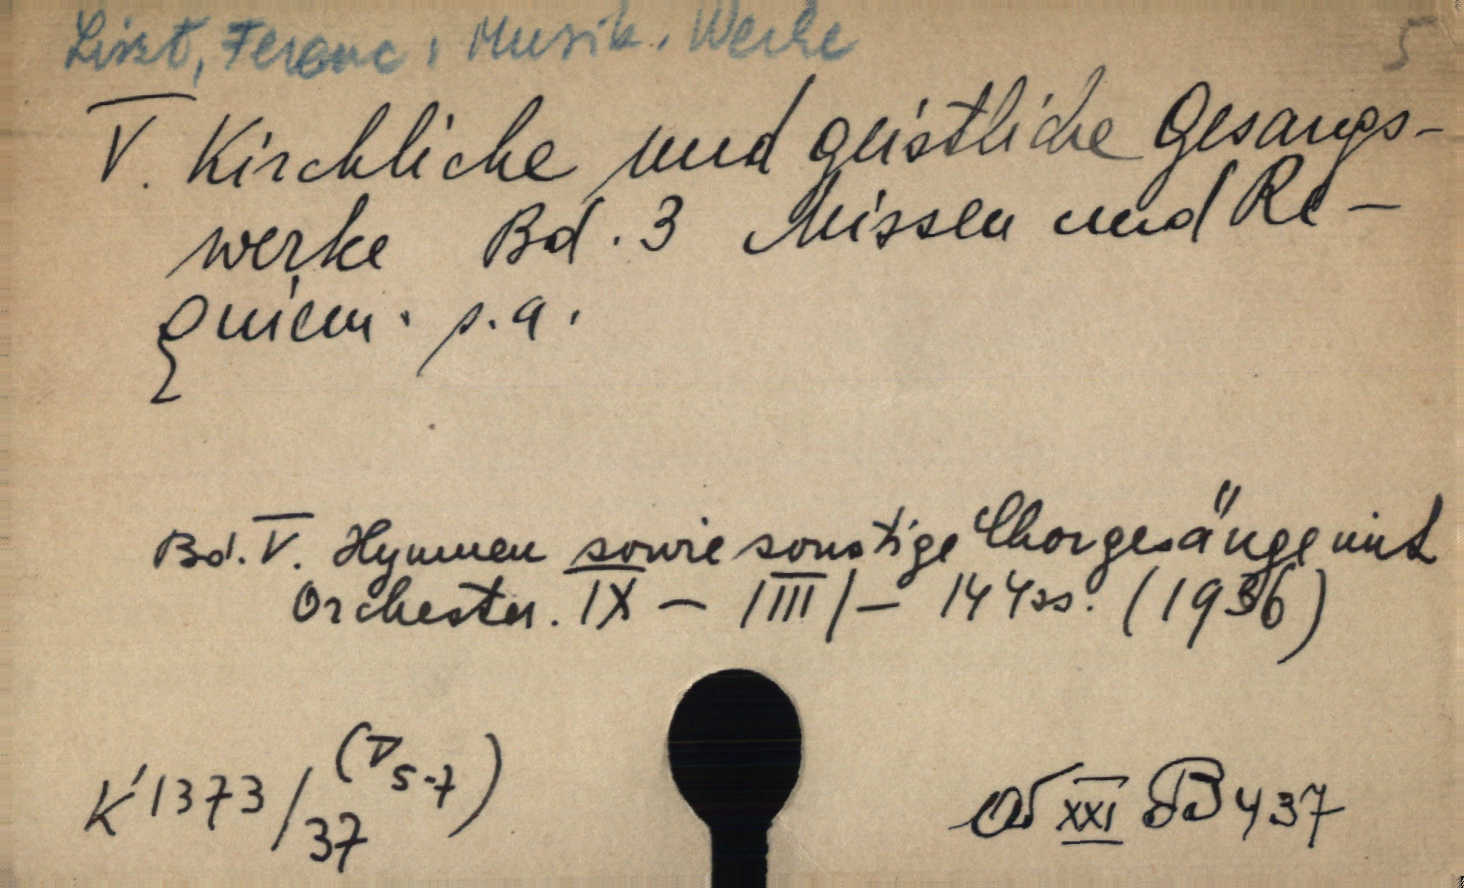 Liszt, Ferenc, Musik. Werke 5
V. Kirchliche und geistliche Gesangs-
werke Bd. 3 Missen und Re-
quiem. s.a.
Bd. V. Hymnen sowie sonstige Chorgesänge mit
Orchester. IX - |III| - 144 ss. (1936)
K 1373/37 (V 5-7)
XXI B 437